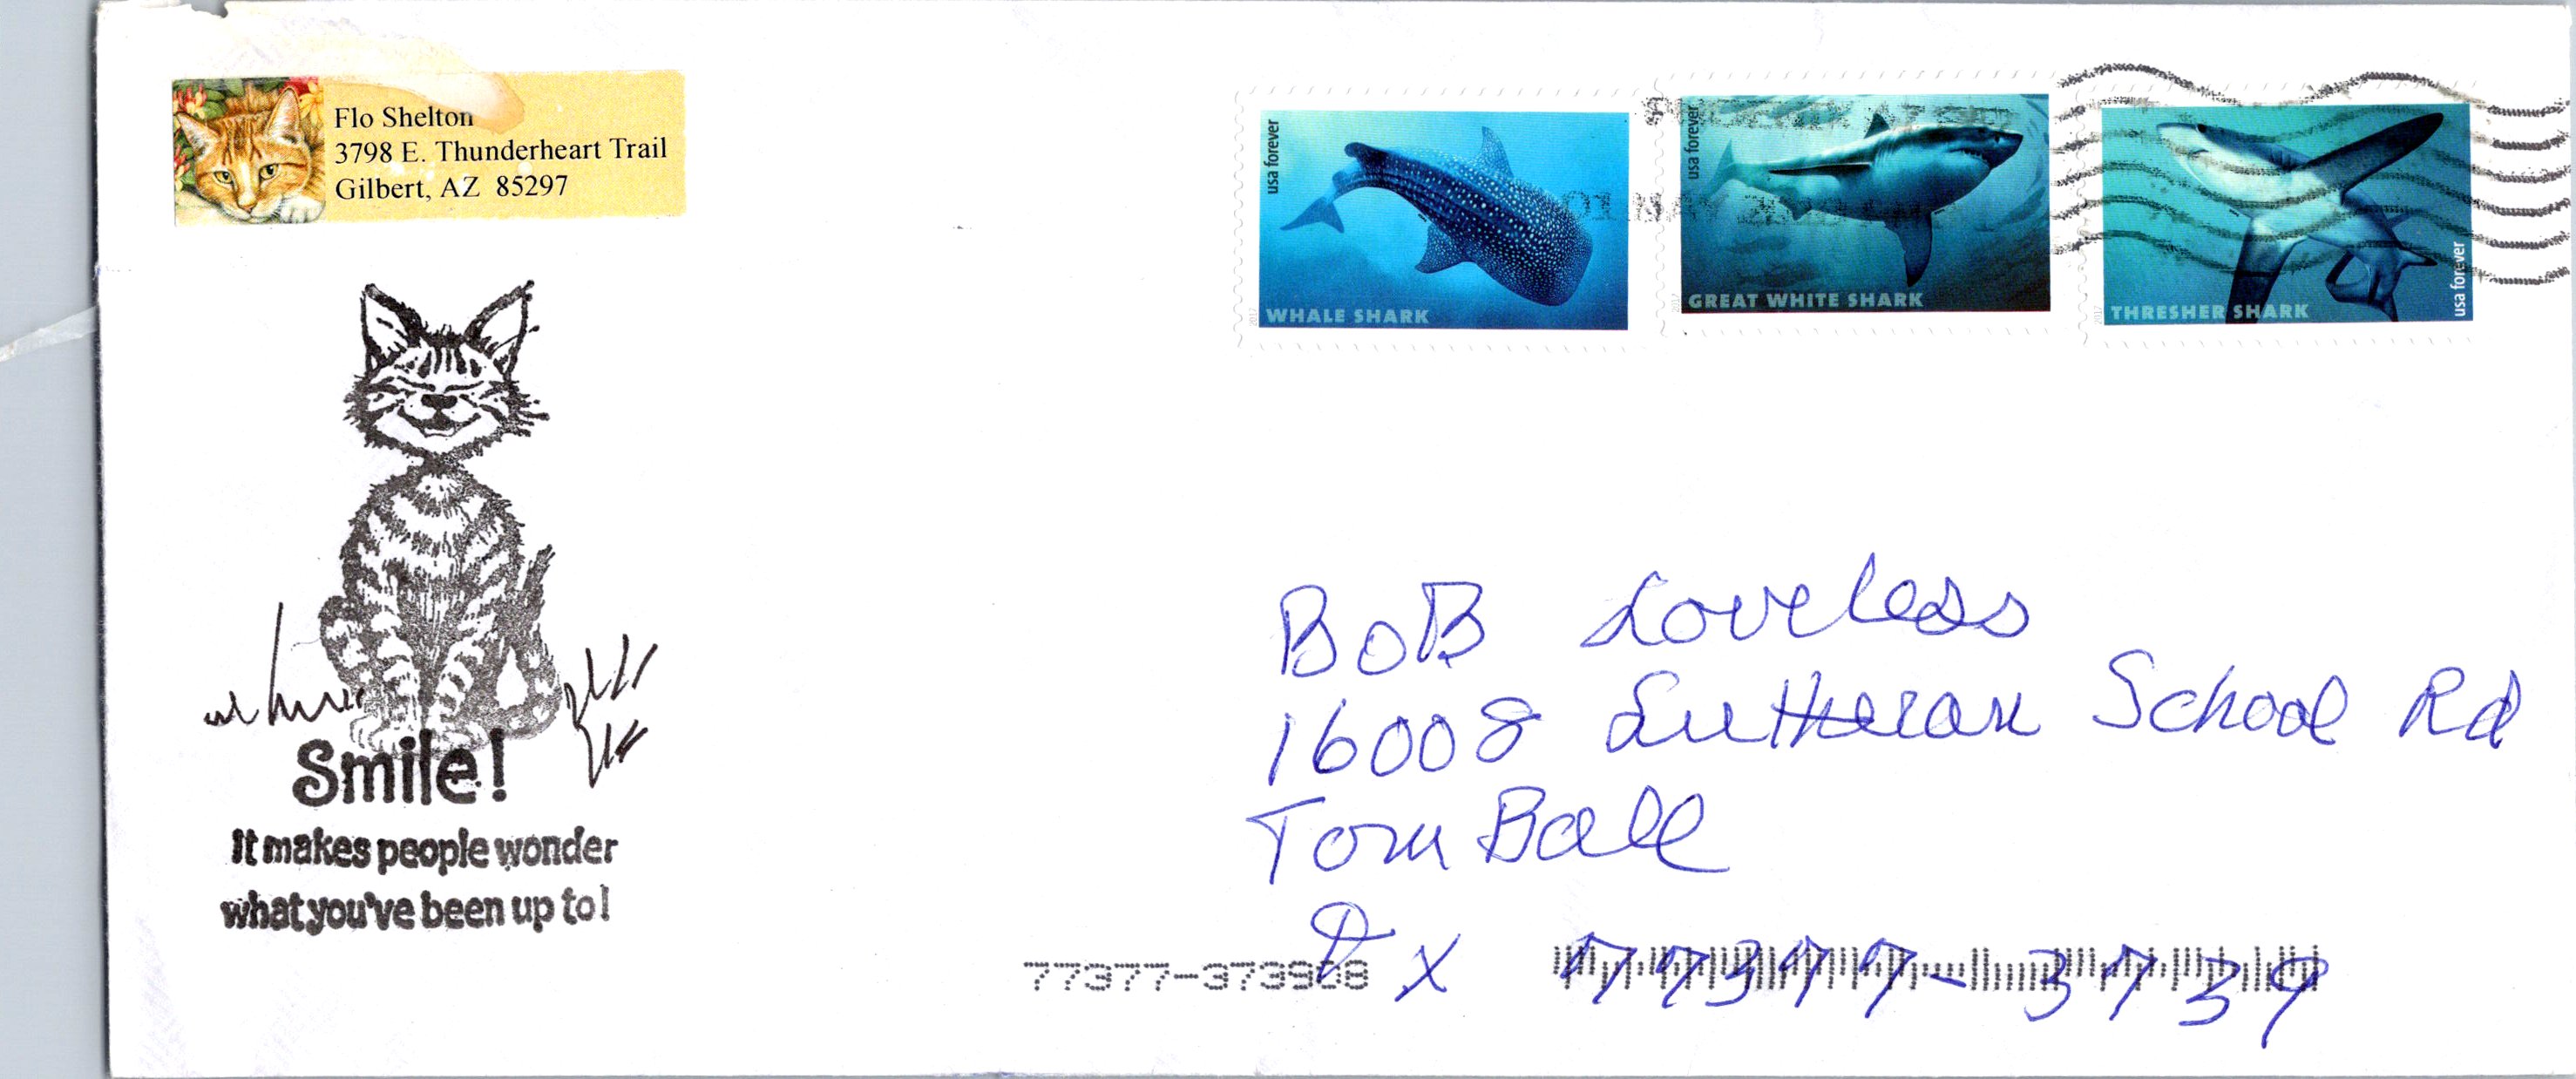 Flo Shelton
3798 E. Thunderheart Trail
Gilbert, AZ 85297
usa forever
WHALE SHARK
2017
usa forever
GREAT WHITE SHARK
2017
usa forever
THRESHER SHARK
2017
01 MAY
Smile!
It makes people wonder
what you've been up to!
BoB Loveless
16008 Lutheran School Rd
Tom Ball
TX 77377-3739
77377-373908